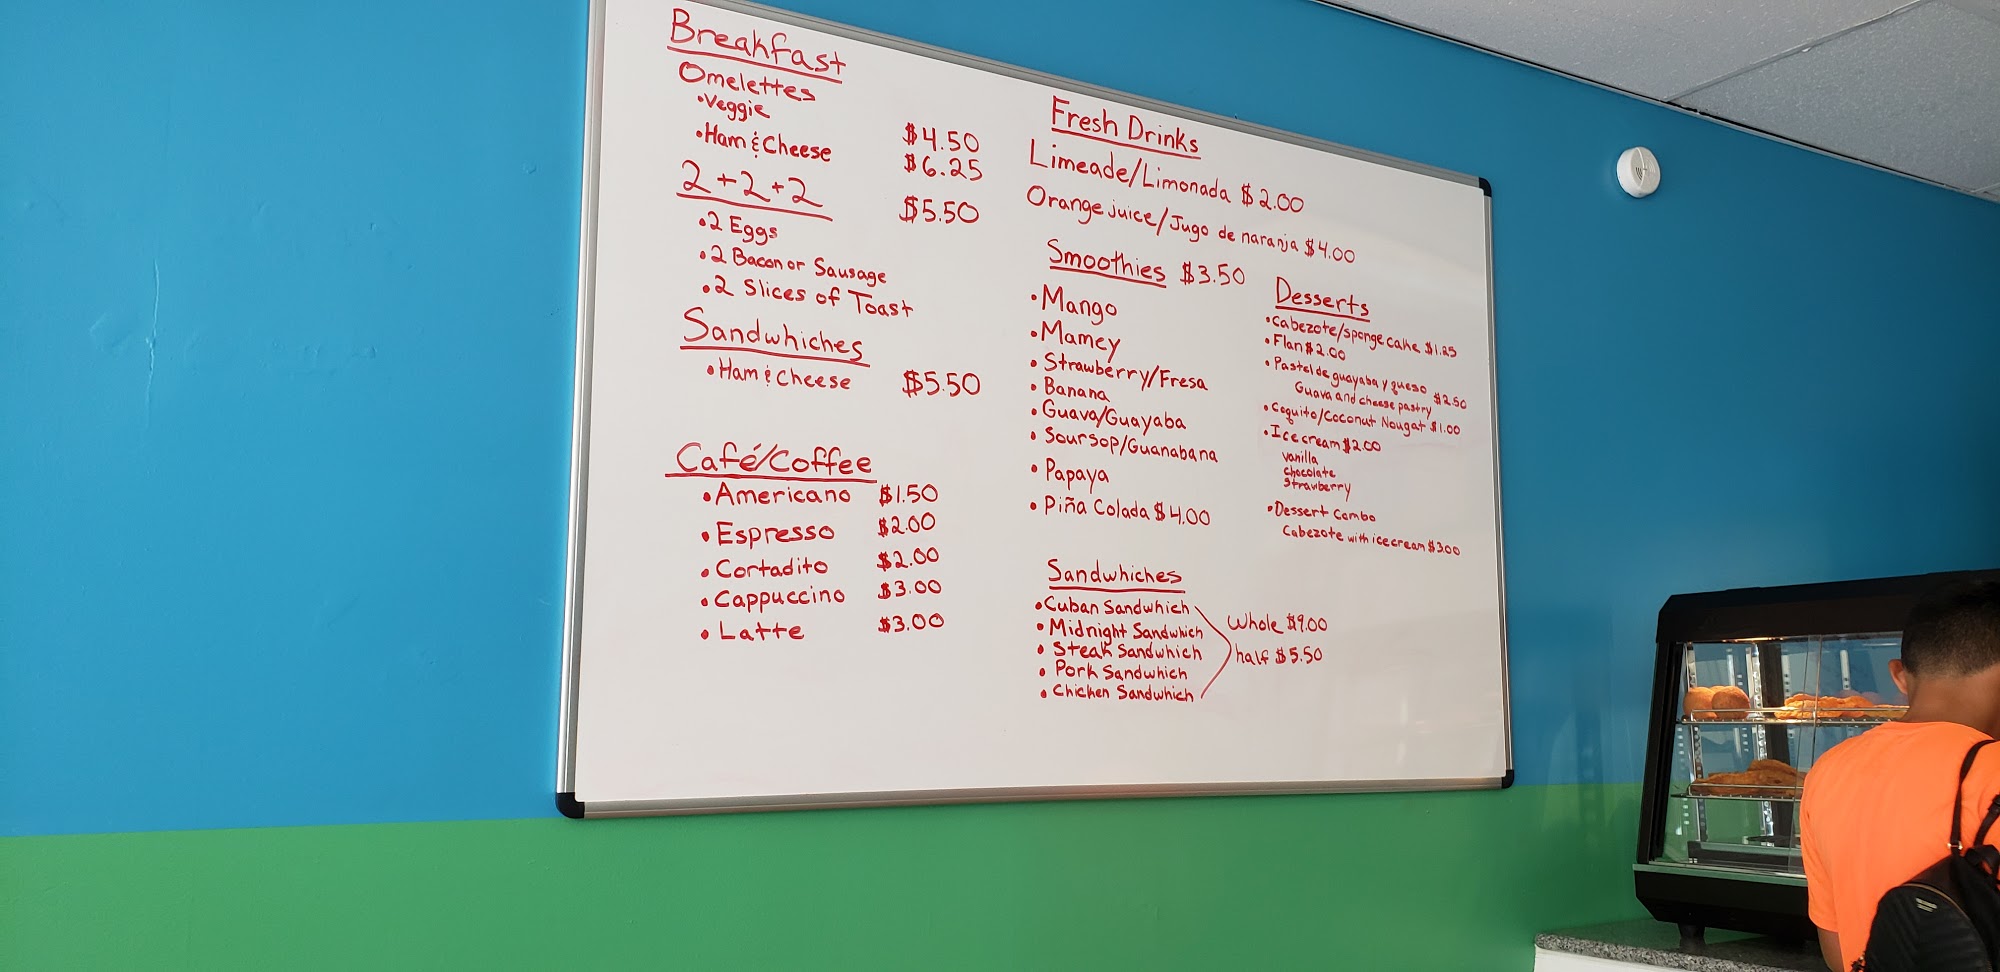 Breakfast
Omelettes
•Veggie $4.50
•Ham & Cheese $6.25
2+2+2 $5.50
•2 Eggs
•2 Bacon or Sausage
•2 Slices of Toast
Sandwhiches
•Ham & Cheese $5.50
Café/Coffee
•Americano $1.50
•Espresso $2.00
•Cortadito $2.00
•Cappuccino $3.00
•Latte $3.00
Fresh Drinks
Limeade/Limonada $2.00
Orange juice/Jugo de naranja $4.00
Smoothies $3.50
•Mango
•Mamey
•Strawberry/Fresa
•Banana
•Guava/Guayaba
•Soursop/Guanabana
•Papaya
•Piña Colada $4.00
Sandwhiches
•Cuban Sandwhich
•Midnight Sandwhich
•Steak Sandwhich
•Pork Sandwhich
•Chicken Sandwhich
Whole $9.00
half $5.50
Desserts
•Cabezote/sponge cake $1.25
•Flan $2.00
•Pastel de guayaba y queso $2.50
Guava and cheese pastry
•Coquito/Coconut Nougat $1.00
•Ice cream $2.00
Vanilla
Chocolate
Strawberry
•Dessert Combo
Cabezote with ice cream $3.00